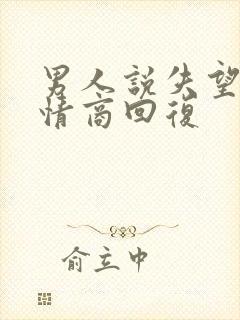 男人說失望
情商回復
俞立中